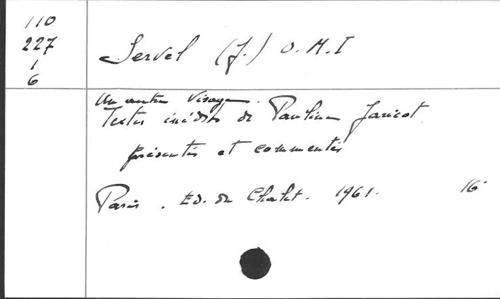 110
227
1
6
Servel (J.) O.M.I
Un autre visage.
Textes inédits de Pauline Jaricot
présentés et commentés
Paris. Ed. du Chalet. 1961. 16